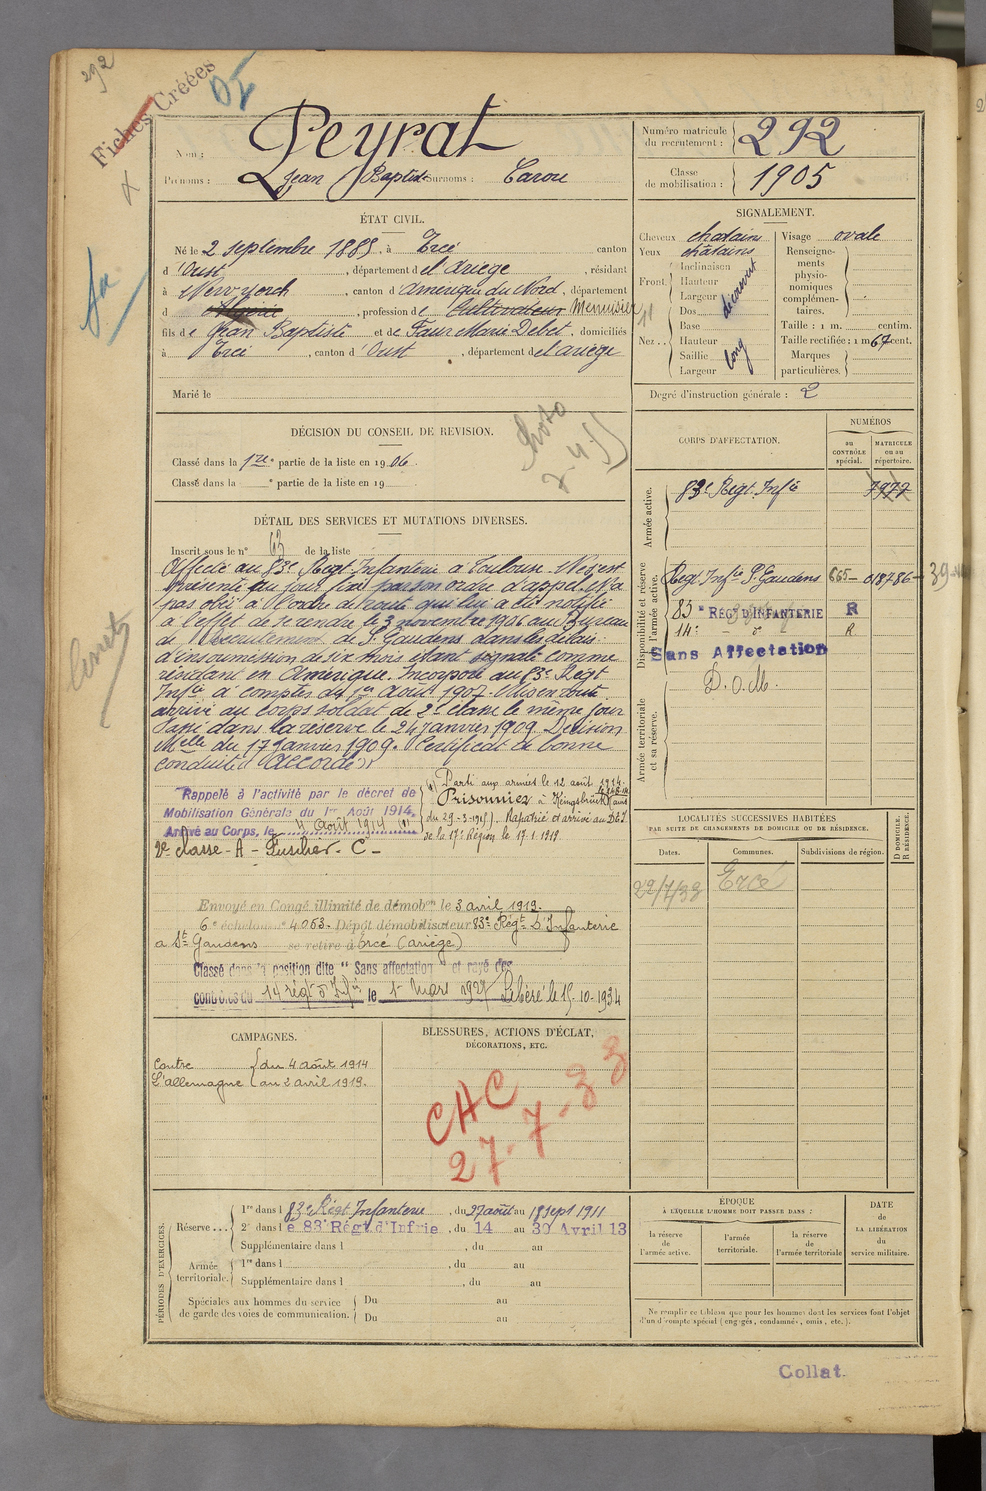 292
Fiches Créées
Nom : Peyrat
Prénoms : Jean Baptiste Surnoms : Carou
Numéro matricule du recrutement : 292
Classe de mobilisation : 1905
ÉTAT CIVIL.
Né le 2 septembre 1885, à Ercé canton
d'Oust, département de l'Ariège, résidant
à New-york, canton d'Amérique du Nord, département
d , profession de Cultivateur Menuisier
fils de Jean Baptiste et de Faur Marie Debet, domiciliés
à Ercé, canton d'Oust, département de l'ariège
Marié le
SIGNALEMENT.
Cheveux chatains
Yeux chatains
Front Inclinaison
Hauteur
Largeur
découvert
Nez Dos
Base
Hauteur
Saillie
Largeur
long
Visage ovale
Renseignements physionomiques complémentaires.
Taille : 1 m. centim.
Taille rectifiée : 1 m 67 cent.
Marques particulières.
Degré d'instruction générale : 2
DÉCISION DU CONSEIL DE REVISION.
Classé dans la 1re partie de la liste en 1906.
Classé dans la e partie de la liste en 19
DÉTAIL DES SERVICES ET MUTATIONS DIVERSES.
Inscrit sous le n° 63 de la liste
Affecté au 83e Régt Infanterie à Toulouse. N'est
présenté au jour fixé par son ordre d'appel. N'a
pas obéi à l'ordre de route qui lui a été notifié
à l'effet de se rendre le 3 novembre 1906 au Bureau
de Recrutement de St Gaudens dans les délais
d'insoumission de six mois étant signalé comme
résidant en Amérique. Incorporé au 83e Régt
Infie à compter du 1er Août 1907. Mis en route
arrivé au corps soldat de 2e classe le même jour
Passé dans la réserve le 24 janvier 1909. Décision
Melle du 17 Janvier 1909. Certificat de bonne
conduite "Accordé"
Rappelé à l'activité par le décret de
Mobilisation Générale du 1er Août 1914.
Arrivé au Corps, le 4 août 1914 (1)
(1) Parti aux armées le 12 août 1914.
Prisonnier à
du 29-3-1915. Rapatrié et arrivé au
de la 17e Région le 17.1.1919
2e classe - A - Fusilier - C -
Envoyé en Congé illimité de démobon le 3 avril 1919.
6e échelon n° 4.053. Dépôt démobilisateur 83e Régt D'Infanterie
a St Gaudens se retire à Ercé (ariège)
Classé dans la position dite "Sans affectation" et rayé des
contrôles du 14 régt d'Infie le 1er Mars 1927 Libéré le 15-10-1934
CORPS D'AFFECTATION.
NUMÉROS
au CONTRÔLE spécial.
MATRICULE ou au répertoire.
Armée active.
83e Régt Infie 7977
Disponibilité et réserve de l'armée active.
Régt Infie St Gaudens 665 018786
83e RÉGt D'INFANTERIE R
14e d° R
Sans Affectation
Armée territoriale et sa réserve.
D.O.M.
LOCALITÉS SUCCESSIVES HABITÉES
PAR SUITE DE CHANGEMENTS DE DOMICILE OU DE RÉSIDENCE.
Dates. Communes. Subdivisions de région. D DOMICILE. R RÉSIDENCE.
22/7/33 Ercé
CAMPAGNES.
Contre l'allemagne du 4 août 1914
au 2 avril 1919.
BLESSURES, ACTIONS D'ÉCLAT,
DÉCORATIONS, ETC.
CHC
27-7-33
PÉRIODES D'EXERCICES.
Réserve... 1re dans l 83e Régt Infanterie, du 27 août au 18 sept 1911
2e dans le 83 Régt d'Infrie, du 14 au 30 Avril 13
Supplémentaire dans l , du au
Armée territoriale. 1re dans l , du au
Supplémentaire dans l , du au
Spéciales aux hommes du service de garde des voies de communication. Du au
Du au
ÉPOQUE
À LAQUELLE L'HOMME DOIT PASSER DANS :
la réserve de l'armée active.
l'armée territoriale.
la réserve de l'armée territoriale
DATE de LA LIBÉRATION du service militaire.
Ne remplir ce tableau que pour les hommes dont les services font l'objet
d'un décompte spécial (engagés, condamnés, omis, etc.).
Collat.